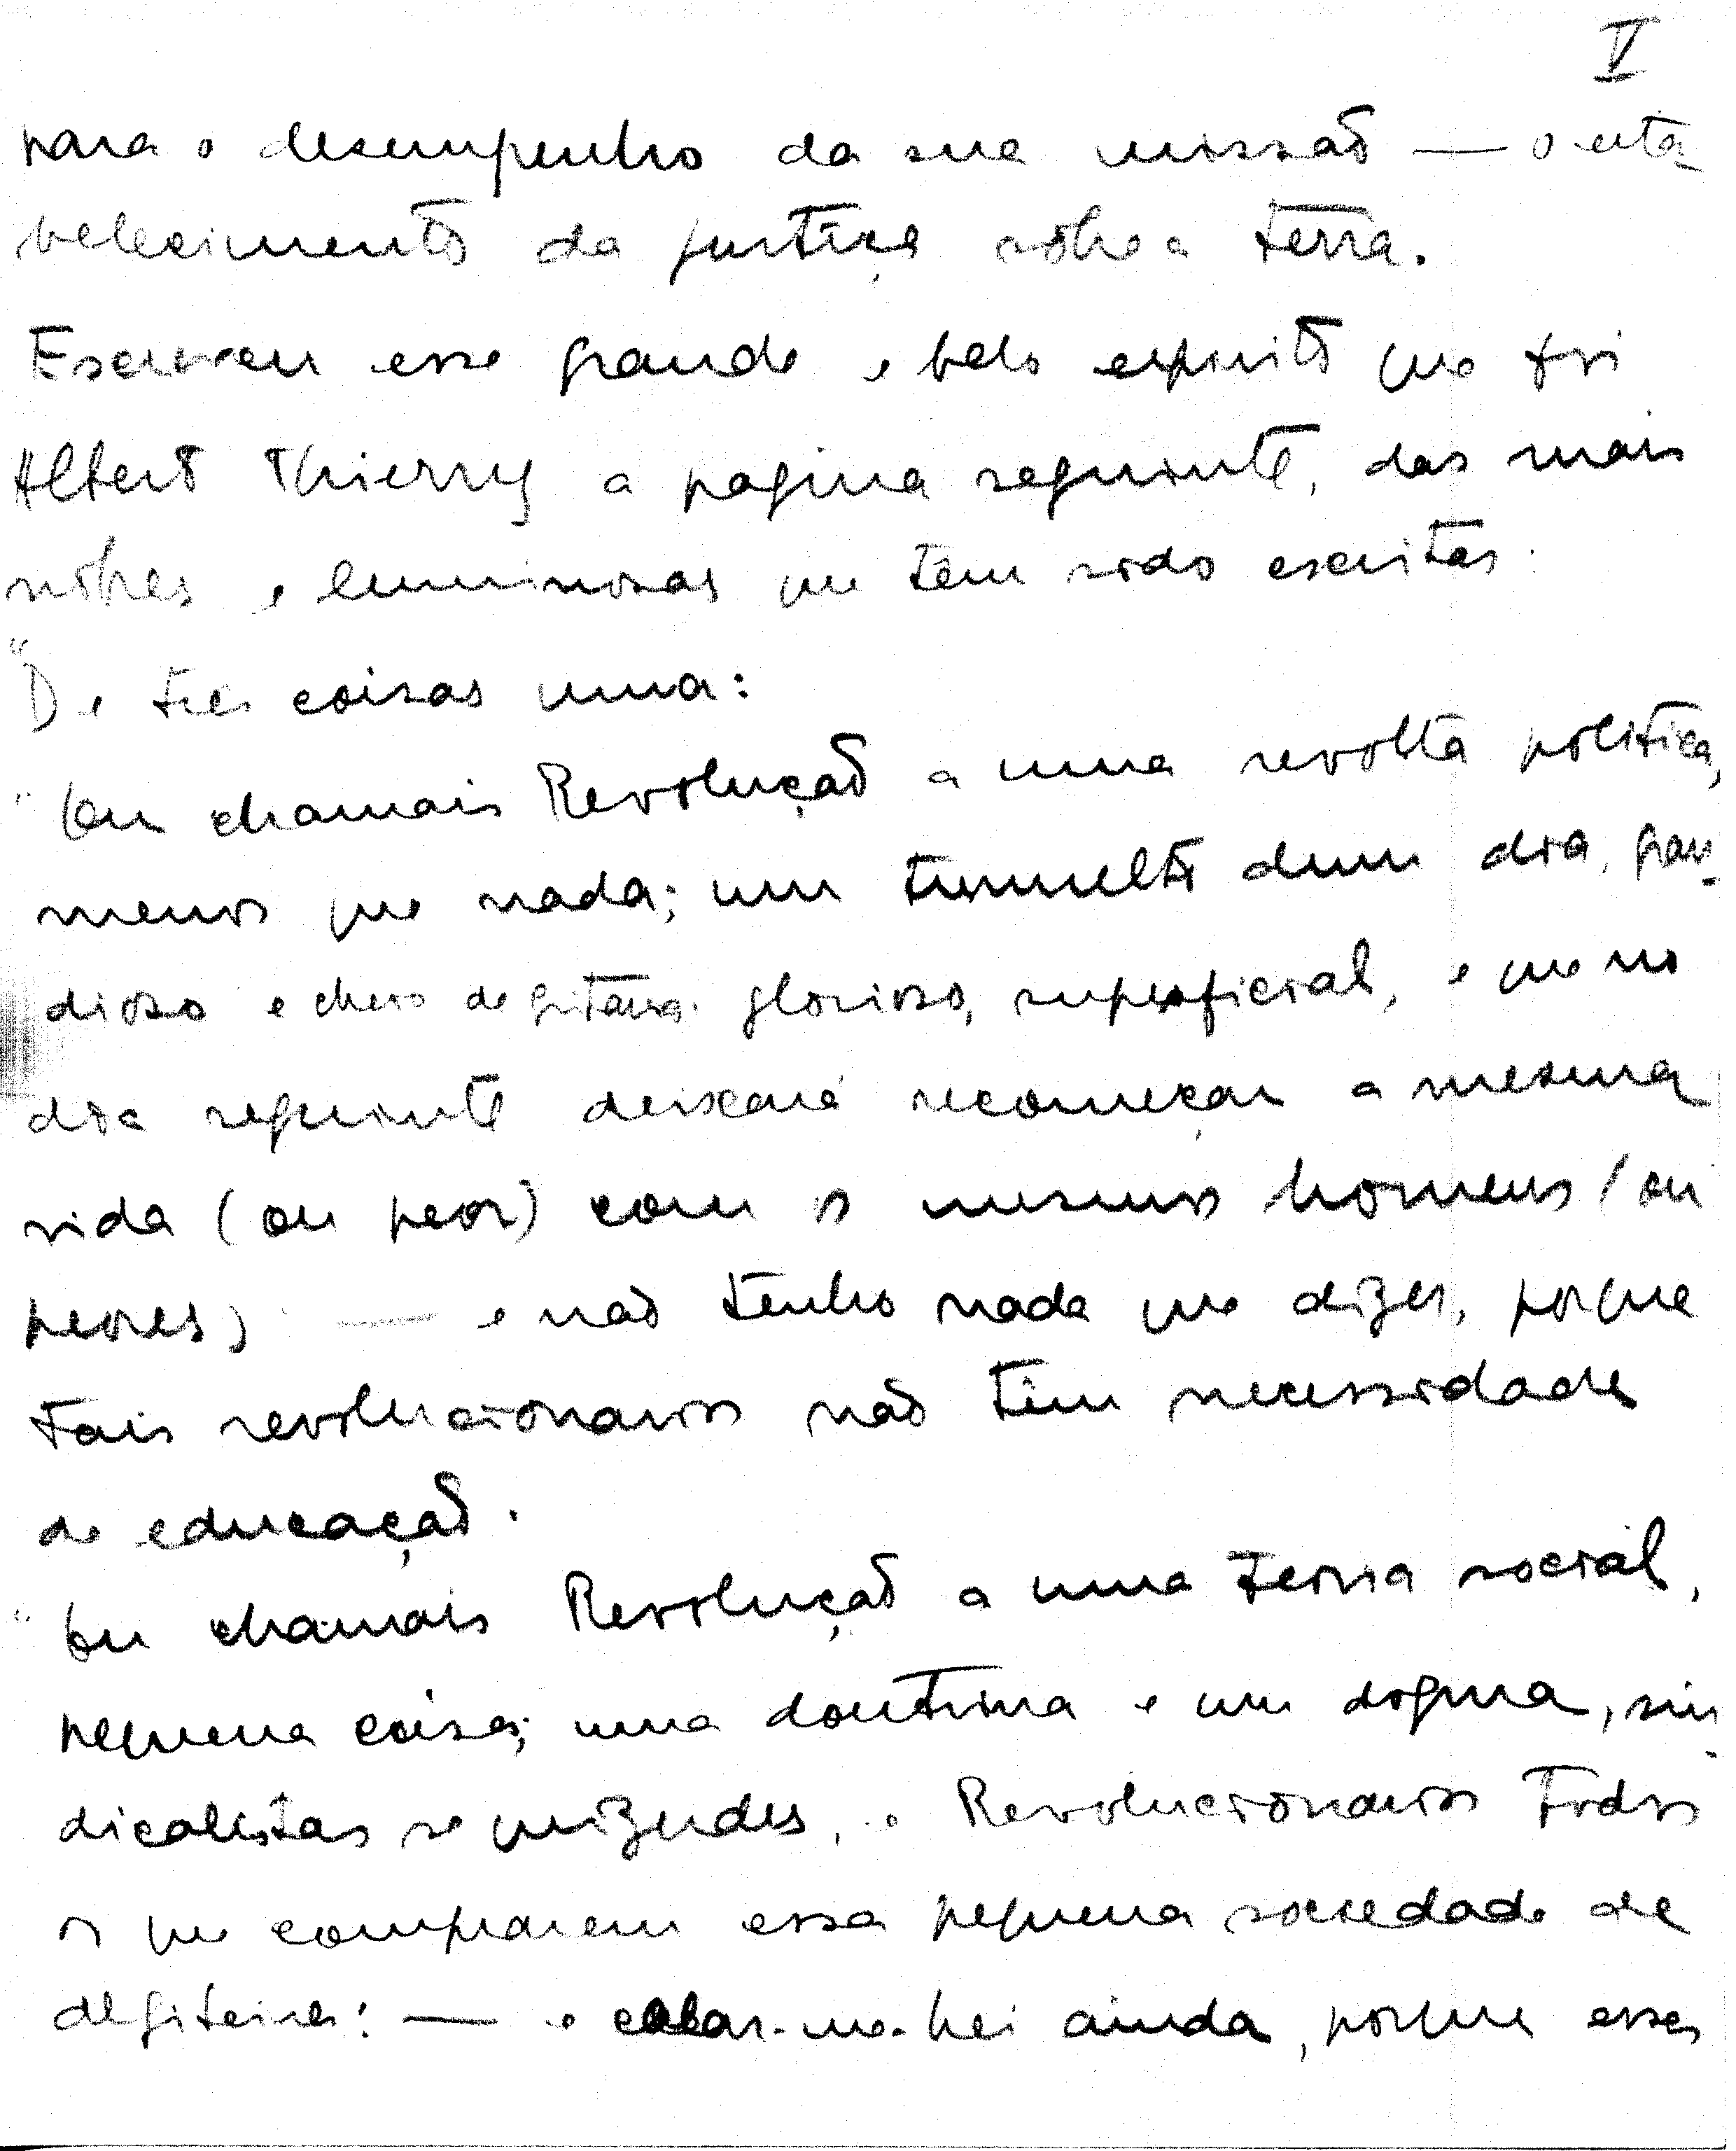 V
para o desempenho da sua missão — o esta-
belecimento da justiça sôbre a terra.
Escreveu esse grande e belo espirito que foi
Albert Thierry a pagina seguinte, das mais
nobres e luminosas que têm sido escritas:
"De tres coisas uma:
"Ou chamais Revolução a uma revolta politica,
menos que nada; um tumulto dum dia, gran-
dioso e cheio de gritaria. glorioso, superficial, e que no
dia seguinte deixará recomeçar a mesma
vida (ou peor) com os mesmos homens (ou
peores) — e não tenho nada que dizer, porque
tais revolucionarios não têm necessidade
de educação.
"Ou chamais Revolução a uma teoria social,
pequena coisa; uma doutrina e um dogma, sin-
dicalistas se quizerdes, e Revolucionarios todos
os que comprarem essa pequena sociedade de
: — e calar-me-hei ainda, porque esses